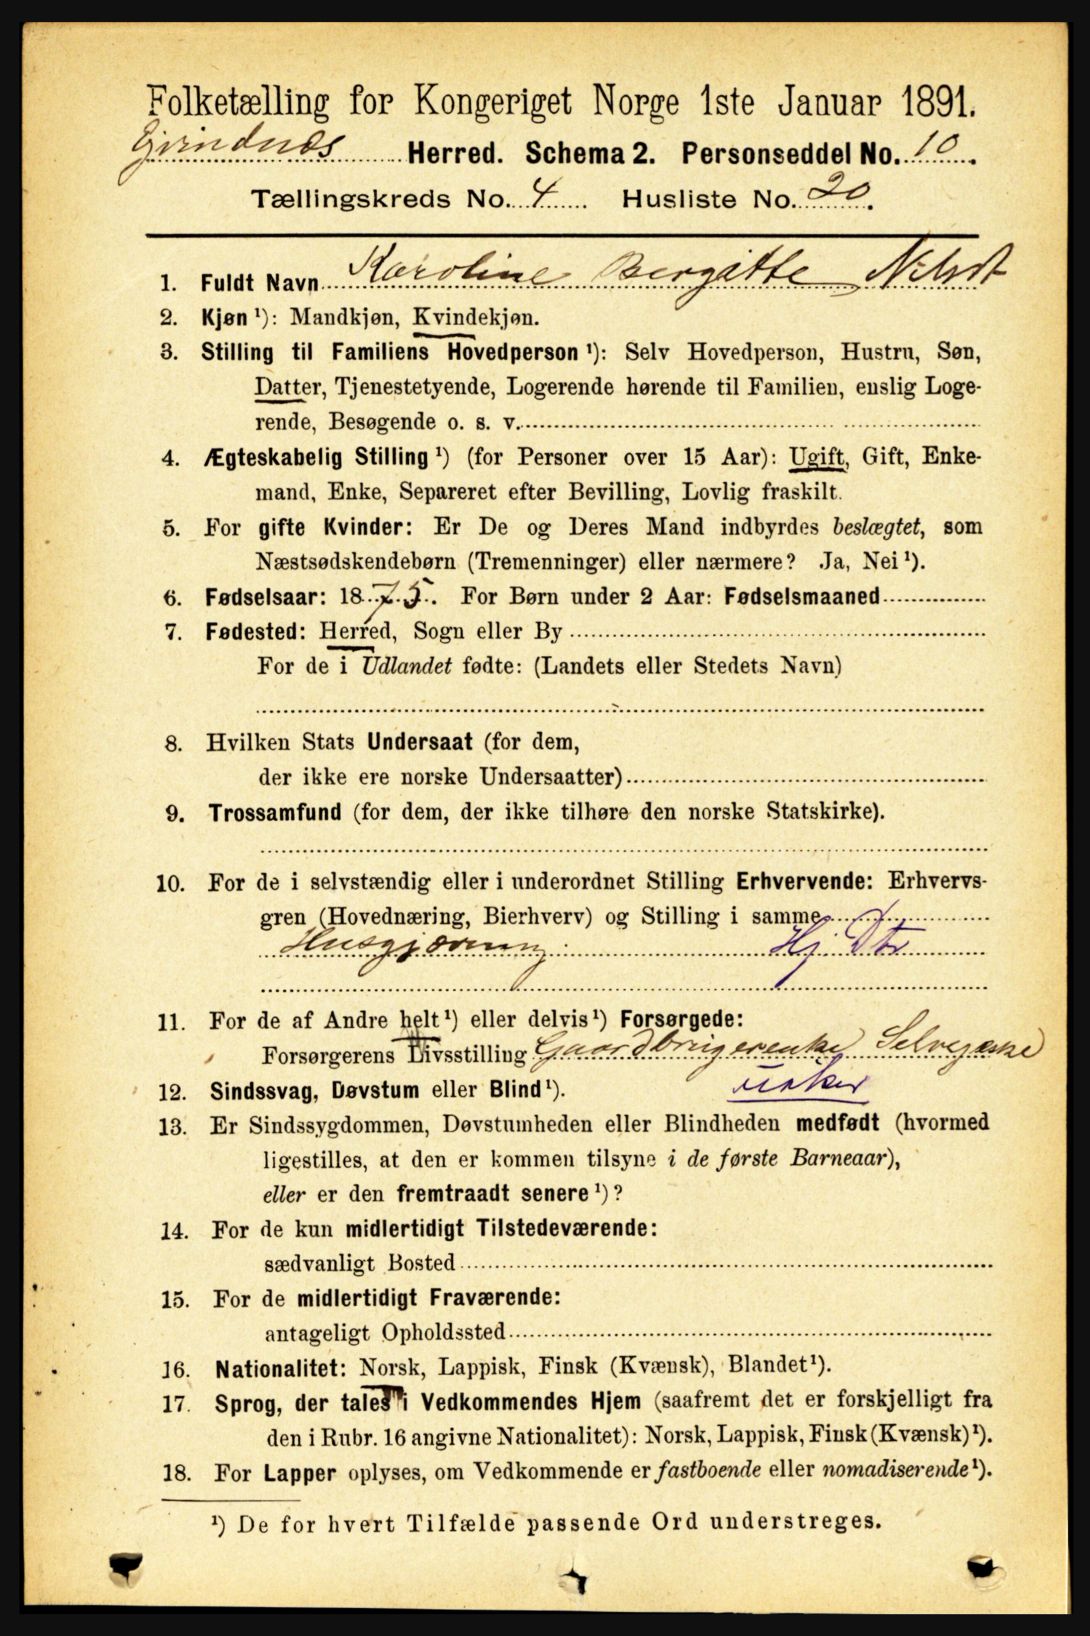 Folketælling for Kongeriget Norge 1ste Januar 1891.
Herred. Schema 2. Personseddel No. 10.
Tællingskreds No. 4. Husliste No. 20.
1. Fuldt Navn Karoline Bergitte
2. Kjøn ¹): Mandkjøn, Kvindekjøn.
3. Stilling til Familiens Hovedperson ¹): Selv Hovedperson, Hustru, Søn,
Datter, Tjenestetyende, Logerende hørende til Familien, enslig Loge-
rende, Besøgende o. s. v.
4. Ægteskabelig Stilling ¹) (for Personer over 15 Aar): Ugift, Gift, Enke-
mand, Enke, Separeret efter Bevilling, Lovlig fraskilt.
5. For gifte Kvinder: Er De og Deres Mand indbyrdes beslægtet, som
Næstsødskendebørn (Tremenninger) eller nærmere? Ja, Nei ¹).
6. Fødselsaar: 1875. For Børn under 2 Aar: Fødselsmaaned
7. Fødested: Herred, Sogn eller By
For de i Udlandet fødte: (Landets eller Stedets Navn)
8. Hvilken Stats Undersaat (for dem,
der ikke ere norske Undersaatter)
9. Trossamfund (for dem, der ikke tilhøre den norske Statskirke).
10. For de i selvstændig eller i underordnet Stilling Erhvervende: Erhvervs-
gren (Hovednæring, Bierhverv) og Stilling i samme
Husgjerning. Hj. Dtr
11. For de af Andre helt ¹) eller delvis ¹) Forsørgede:
Forsørgerens Livsstilling Gaardbrugerenke Selvejerske
12. Sindssvag, Døvstum eller Blind ¹).
13. Er Sindssygdommen, Døvstumheden eller Blindheden medfødt (hvormed
ligestilles, at den er kommen tilsyne i de første Barneaar),
eller er den fremtraadt senere ¹)?
14. For de kun midlertidigt Tilstedeværende:
sædvanligt Bosted
15. For de midlertidigt Fraværende:
antageligt Opholdssted
16. Nationalitet: Norsk, Lappisk, Finsk (Kvænsk), Blandet ¹).
17. Sprog, der tales i Vedkommendes Hjem (saafremt det er forskjelligt fra
den i Rubr. 16 angivne Nationalitet): Norsk, Lappisk, Finsk (Kvænsk) ¹).
18. For Lapper oplyses, om Vedkommende er fastboende eller nomadiserende ¹).
¹) De for hvert Tilfælde passende Ord understreges.